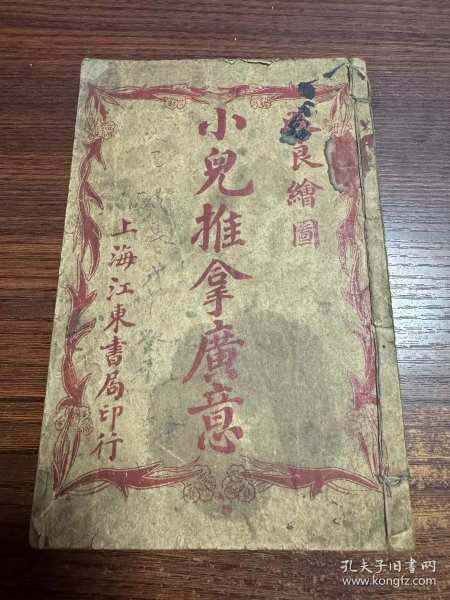 良繪圖
小兒推拿廣意
上海江東書局印行
孔夫子旧书网
www.kongfz.com